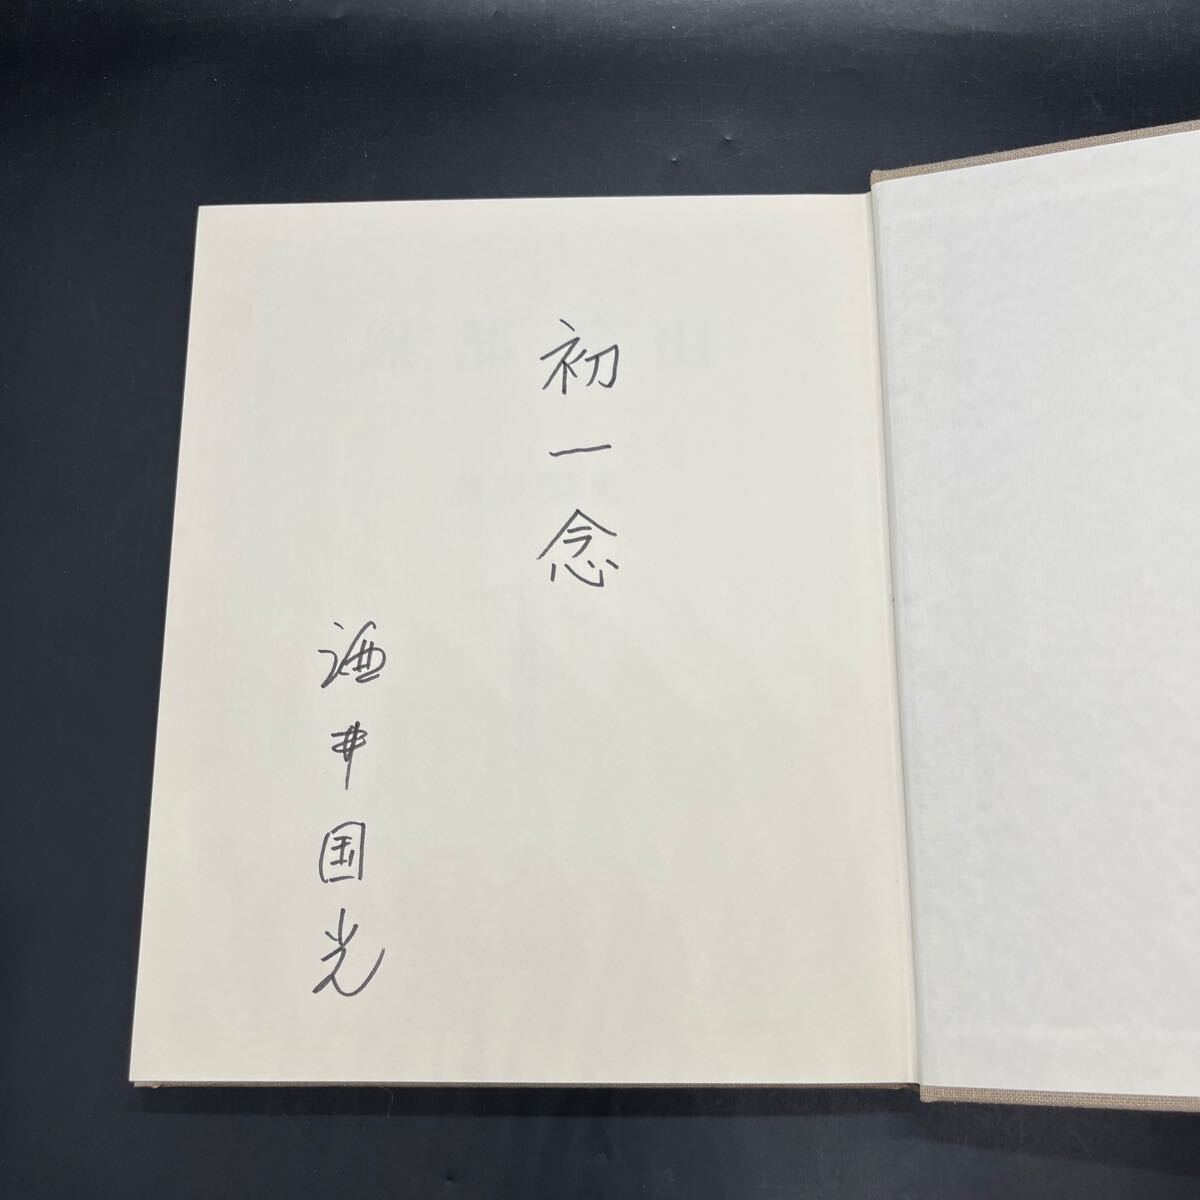 初一念
酒井国光